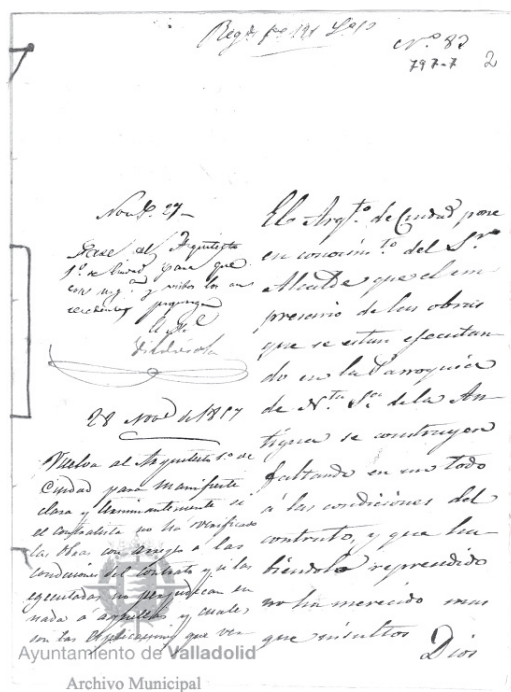 Nº 82
797-7 2
Novb. 27
Pase al Arquitecto
1º de Ciudad para que
con urg.
28 Nov.e de 1857
Vuelva al Arquitecto 1º de
Ciudad para manifieste
clara y terminantemente si
el contratista no ha verificado
las obras con arreglo a las
condiciones del contrato y si las
egecutadas perjudican en
nada á aquellas y cuales
son las que ven
El Arqt.º de Ciudad pone
en conocim.to del Sr.
Alcalde que el em
presario de las obras
que se estan ejecutan
do en la Parroquia
de N.ta S.a de la An
tigua se construyen
faltando en un todo
á las condiciones del
contrato, y que ha
biendole reprendido
no ha merecido mas
que insultos
Dios
Ayuntamiento de Valladolid
Archivo Municipal